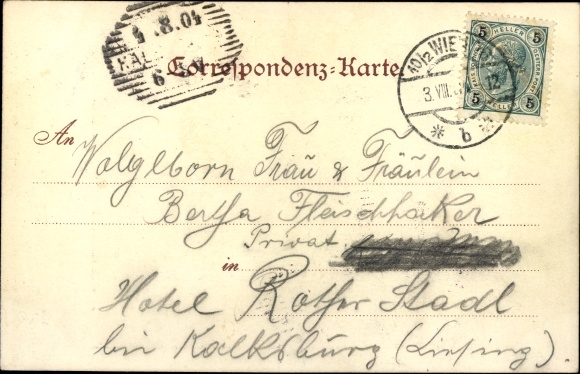 4.8.04
KAL
6
Correspondenz-Karte
10/2 WIE
3. VIII.
12
* b *
5 HELLER 5
5 HELLER 5
An Wolglborn Frau & Fräulein
Bertha Fleischhaker
Privat
in
Hotel Rother Stadl
bei Kalksburg (Liesing).